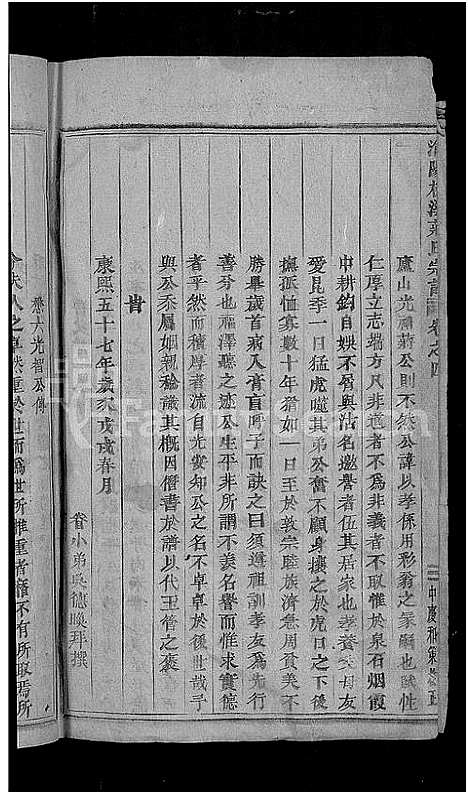 廬山光裕蔣公則不然公諱以孝係用彩翁之冢嗣也賦性
仁厚立志端方凡非道者不為非義者不取惟於泉石烟霞
中耕鈎自娛不屑與沽名邀譽者伍其居家也孝養父母
愛昆季一日猛虎噬其弟公奮不顧身攘之於虎口之下後
撫孤恤寡數十年猶如一日至於敦宗睦族濟急周貧美不
勝舉歲首病入膏肓呼子而訣之曰須遵祖訓孝友為先行
善分也福澤聽之迹公生平非所謂不羨名譽而惟求實德
者乎然而積厚者流自光安知公之名不卓卓於後世哉予
與公忝屬姻親稔識其概因僭書於譜以代王管之褒
旹
康熙五十七年歲次戊戌春月
眷小弟吳德煥拜撰
懋六光智公傳